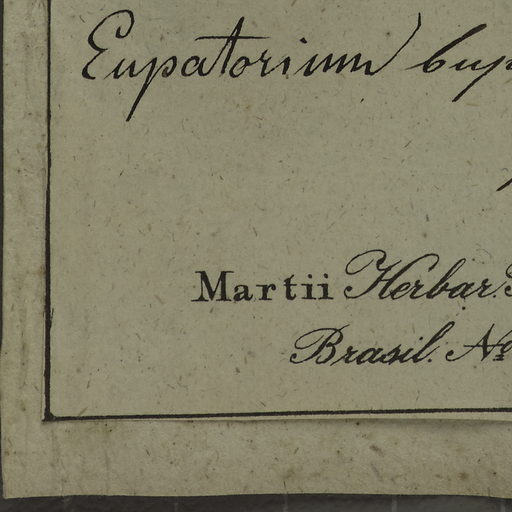 Eupatorium bup
Martii Herbar.
Brasil. No